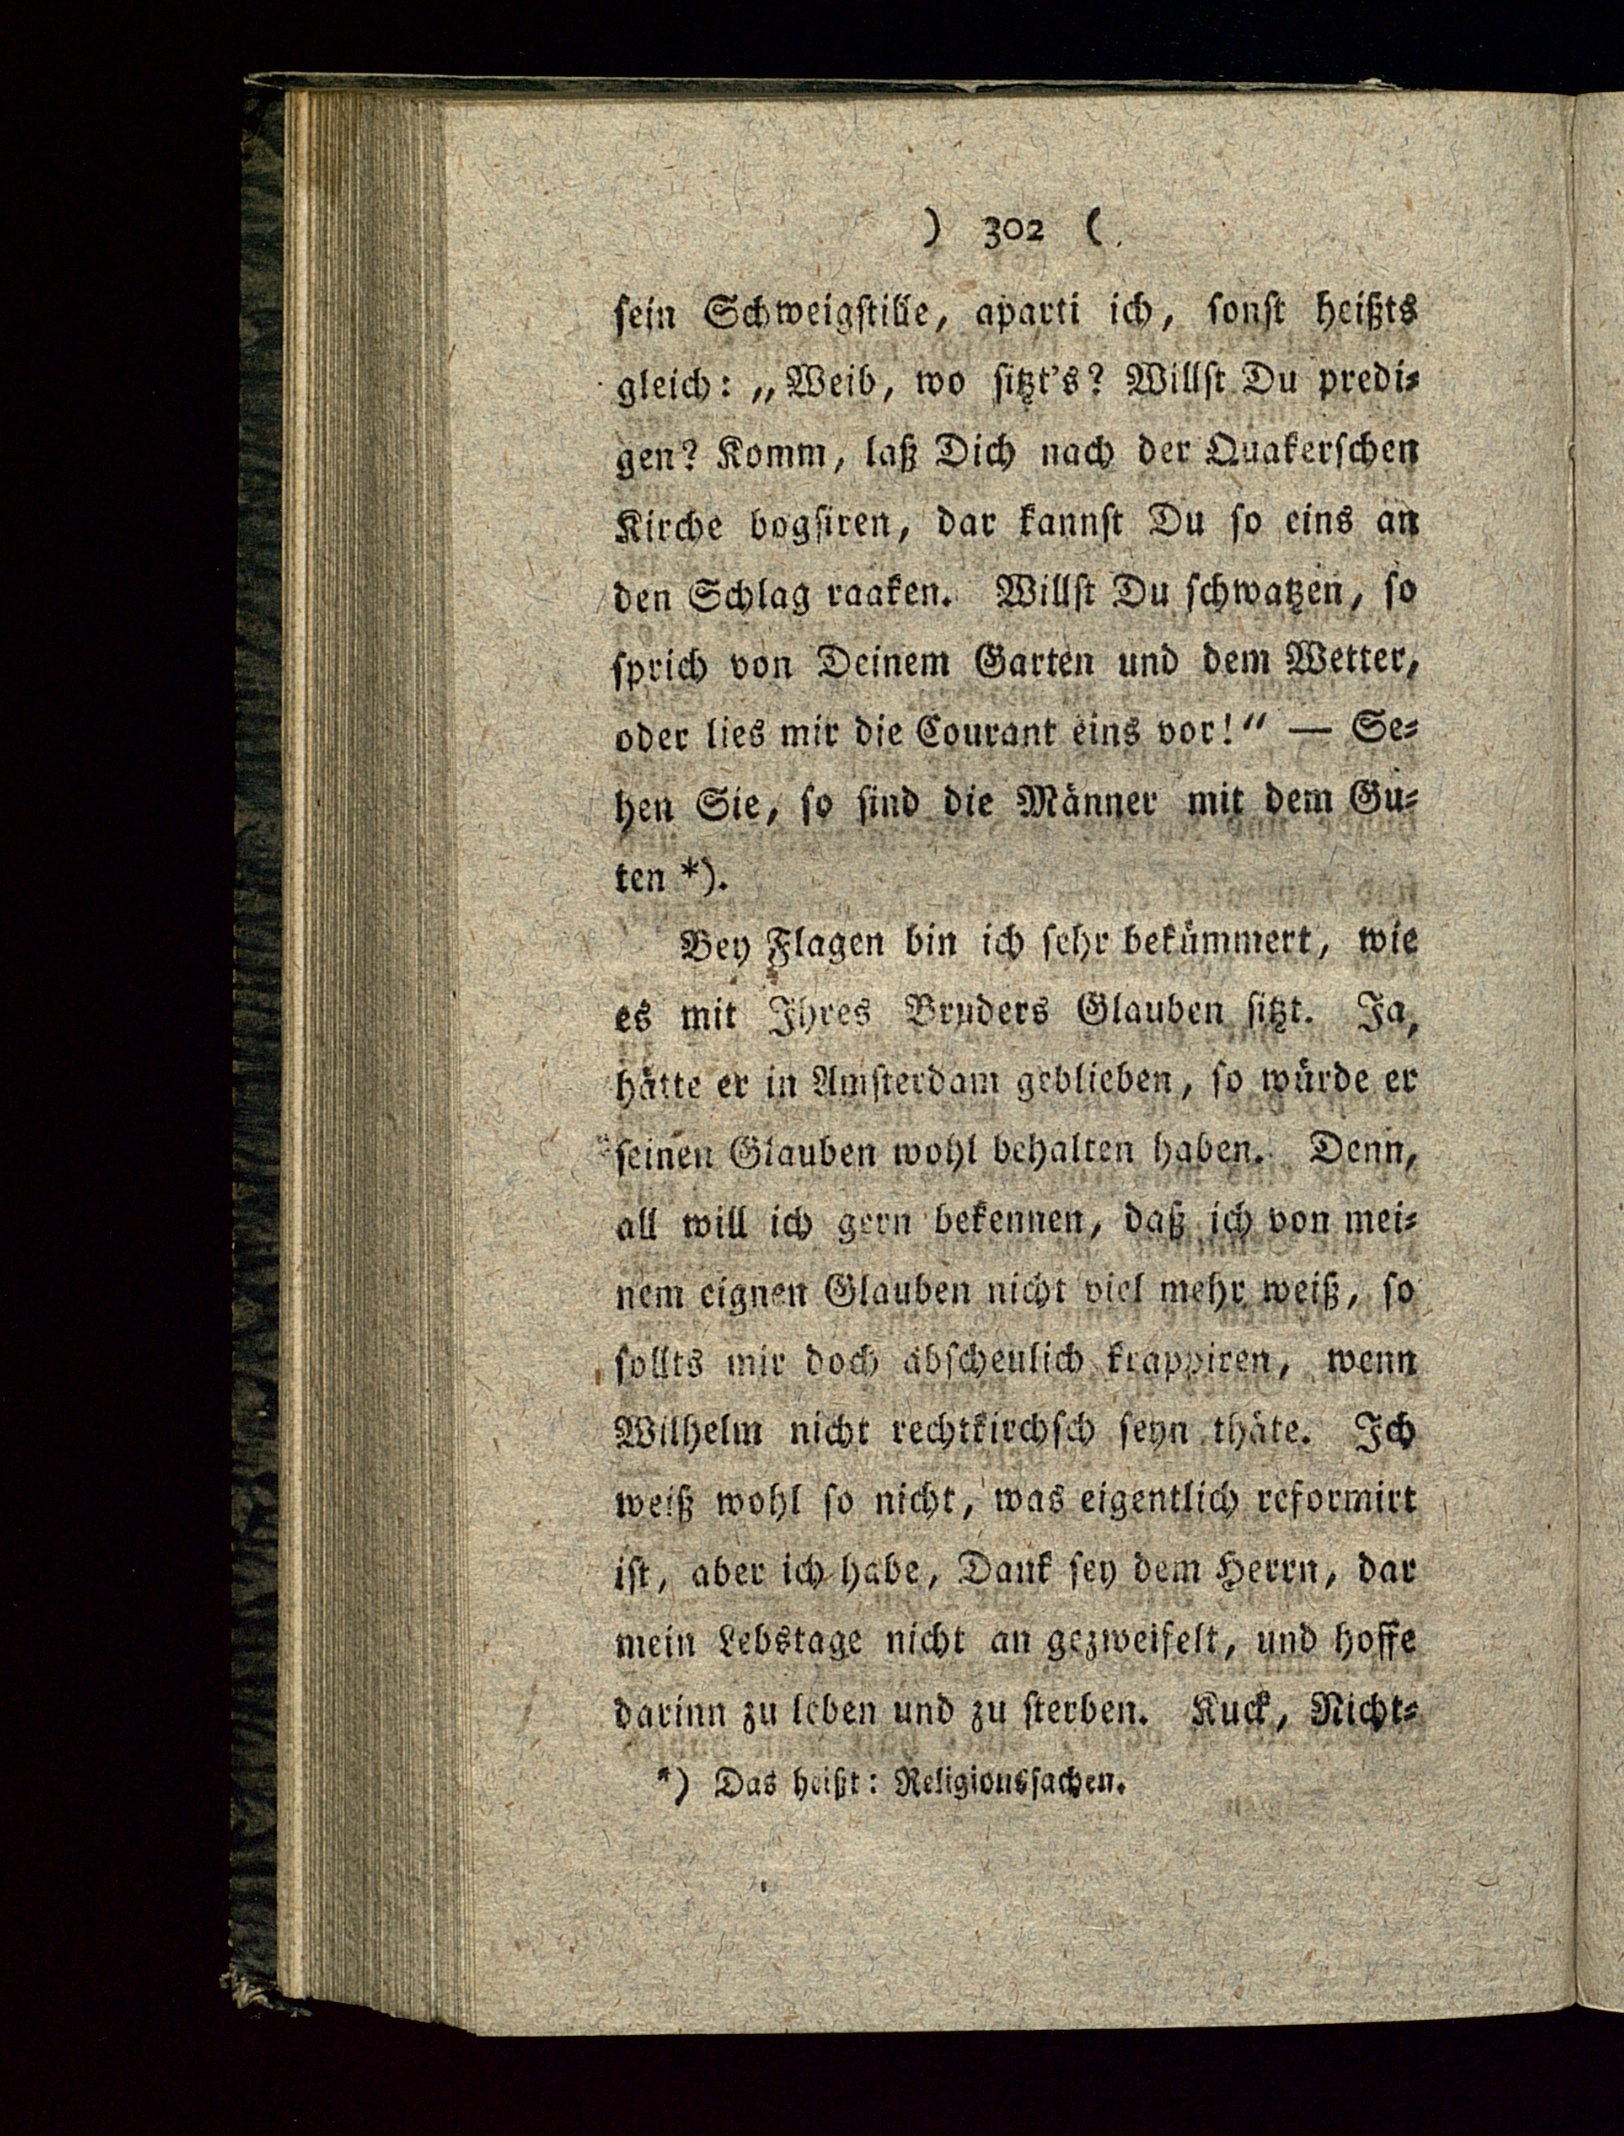 ) 302 (
sein Schweigstille, aparti ich, sonst heißts
gleich: „Weib, wo sitzt's? Willst Du predi-
gen? Komm, laß Dich nach der Quakerschen
Kirche bogsiren, dar kannst Du so eins an
den Schlag raaken. Willst Du schwatzen, so
sprich von Deinem Garten und dem Wetter,
oder lies mir die Courant eins vor!“ — Se-
hen Sie, so sind die Männer mit dem Gu-
ten *).
Bey Flagen bin ich sehr bekümmert, wie
es mit Ihres Bruders Glauben sitzt. Ja,
hätte er in Amsterdam geblieben, so würde er
seinen Glauben wohl behalten haben. Denn,
all will ich gern bekennen, daß ich von mei-
nem eignen Glauben nicht viel mehr weiß, so
sollts mir doch abscheulich krappiren, wenn
Wilhelm nicht rechtkirchsch seyn thäte. Ich
weiß wohl so nicht, was eigentlich reformirt
ist, aber ich habe, Dank sey dem Herrn, dar
mein Lebstage nicht an gezweifelt, und hoffe
darinn zu leben und zu sterben. Kuck, Nicht-
*) Das heißt: Religionssachen.